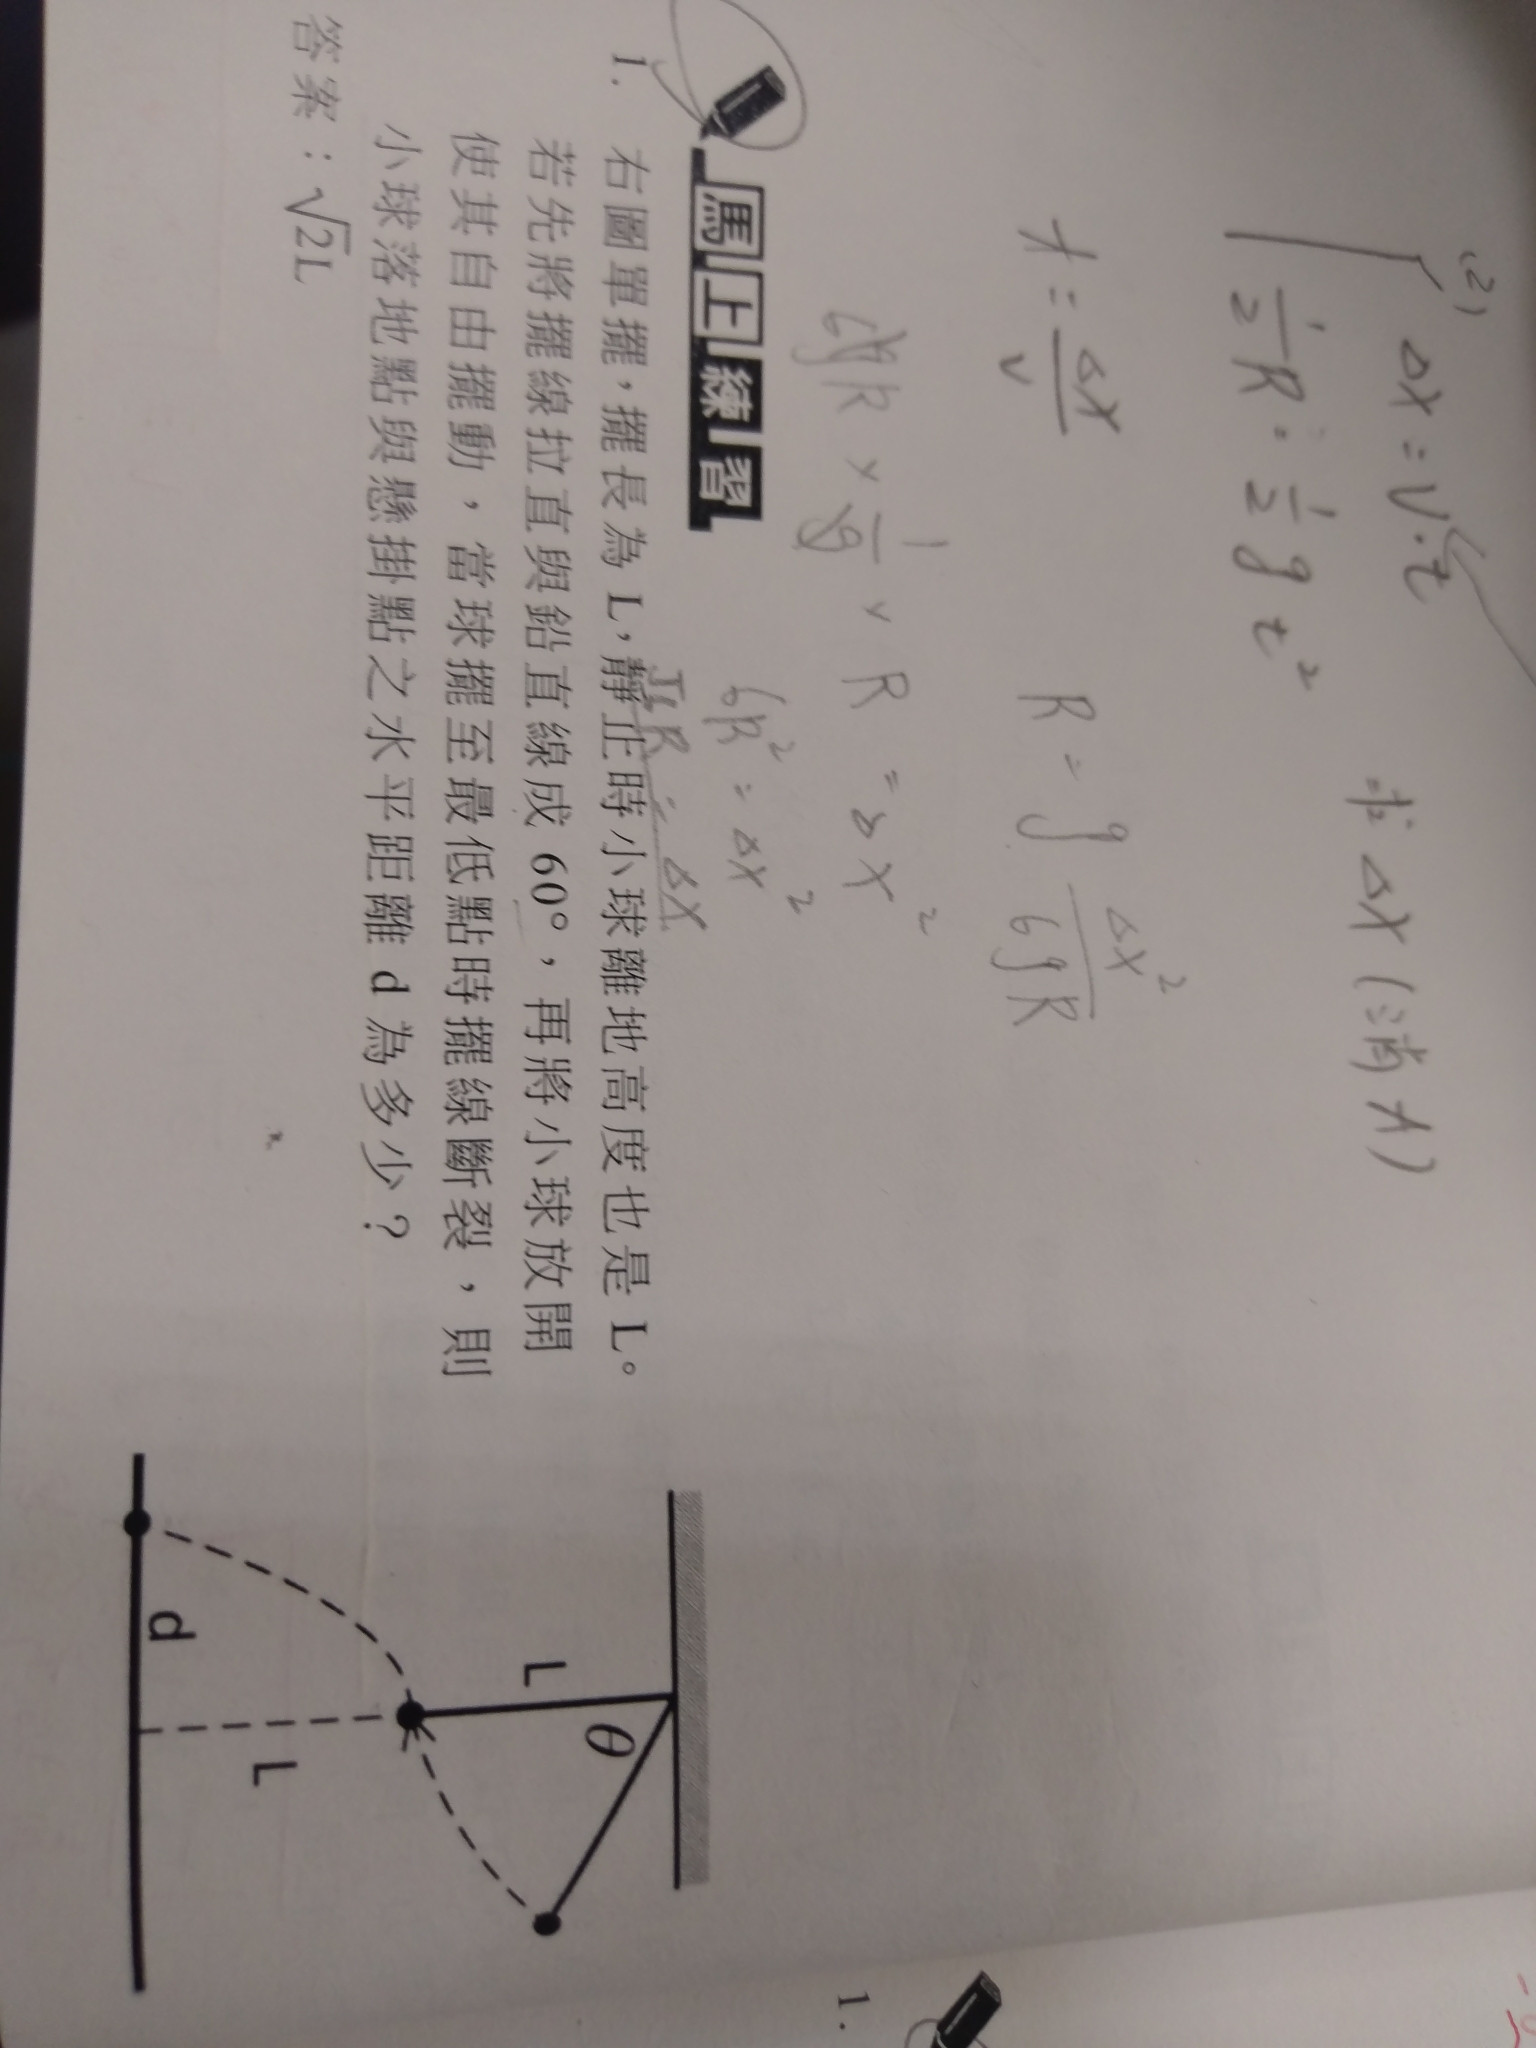 (2) Δx = V · t
求 Δx (消 t)
1/2 R = 1/2 g t²
t = Δx/V
R = g Δx²/6gR
6gR × 1/g × R = Δx²
6R² = Δx²
√6R = Δx
馬上練習
1. 右圖單擺，擺長為 L，靜止時小球離地高度也是 L。
若先將擺線拉直與鉛直線成 60°，再將小球放開
使其自由擺動，當球擺至最低點時擺線斷裂，則
小球落地點與懸掛點之水平距離 d 為多少？
答案：√2L
θ
L
L
d
1.